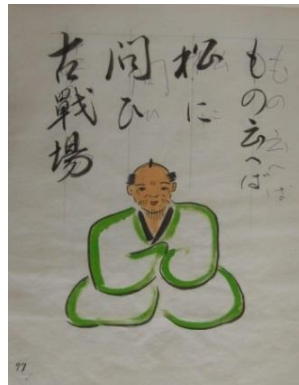 もの云へば
松に
問ひ
古戰場
97